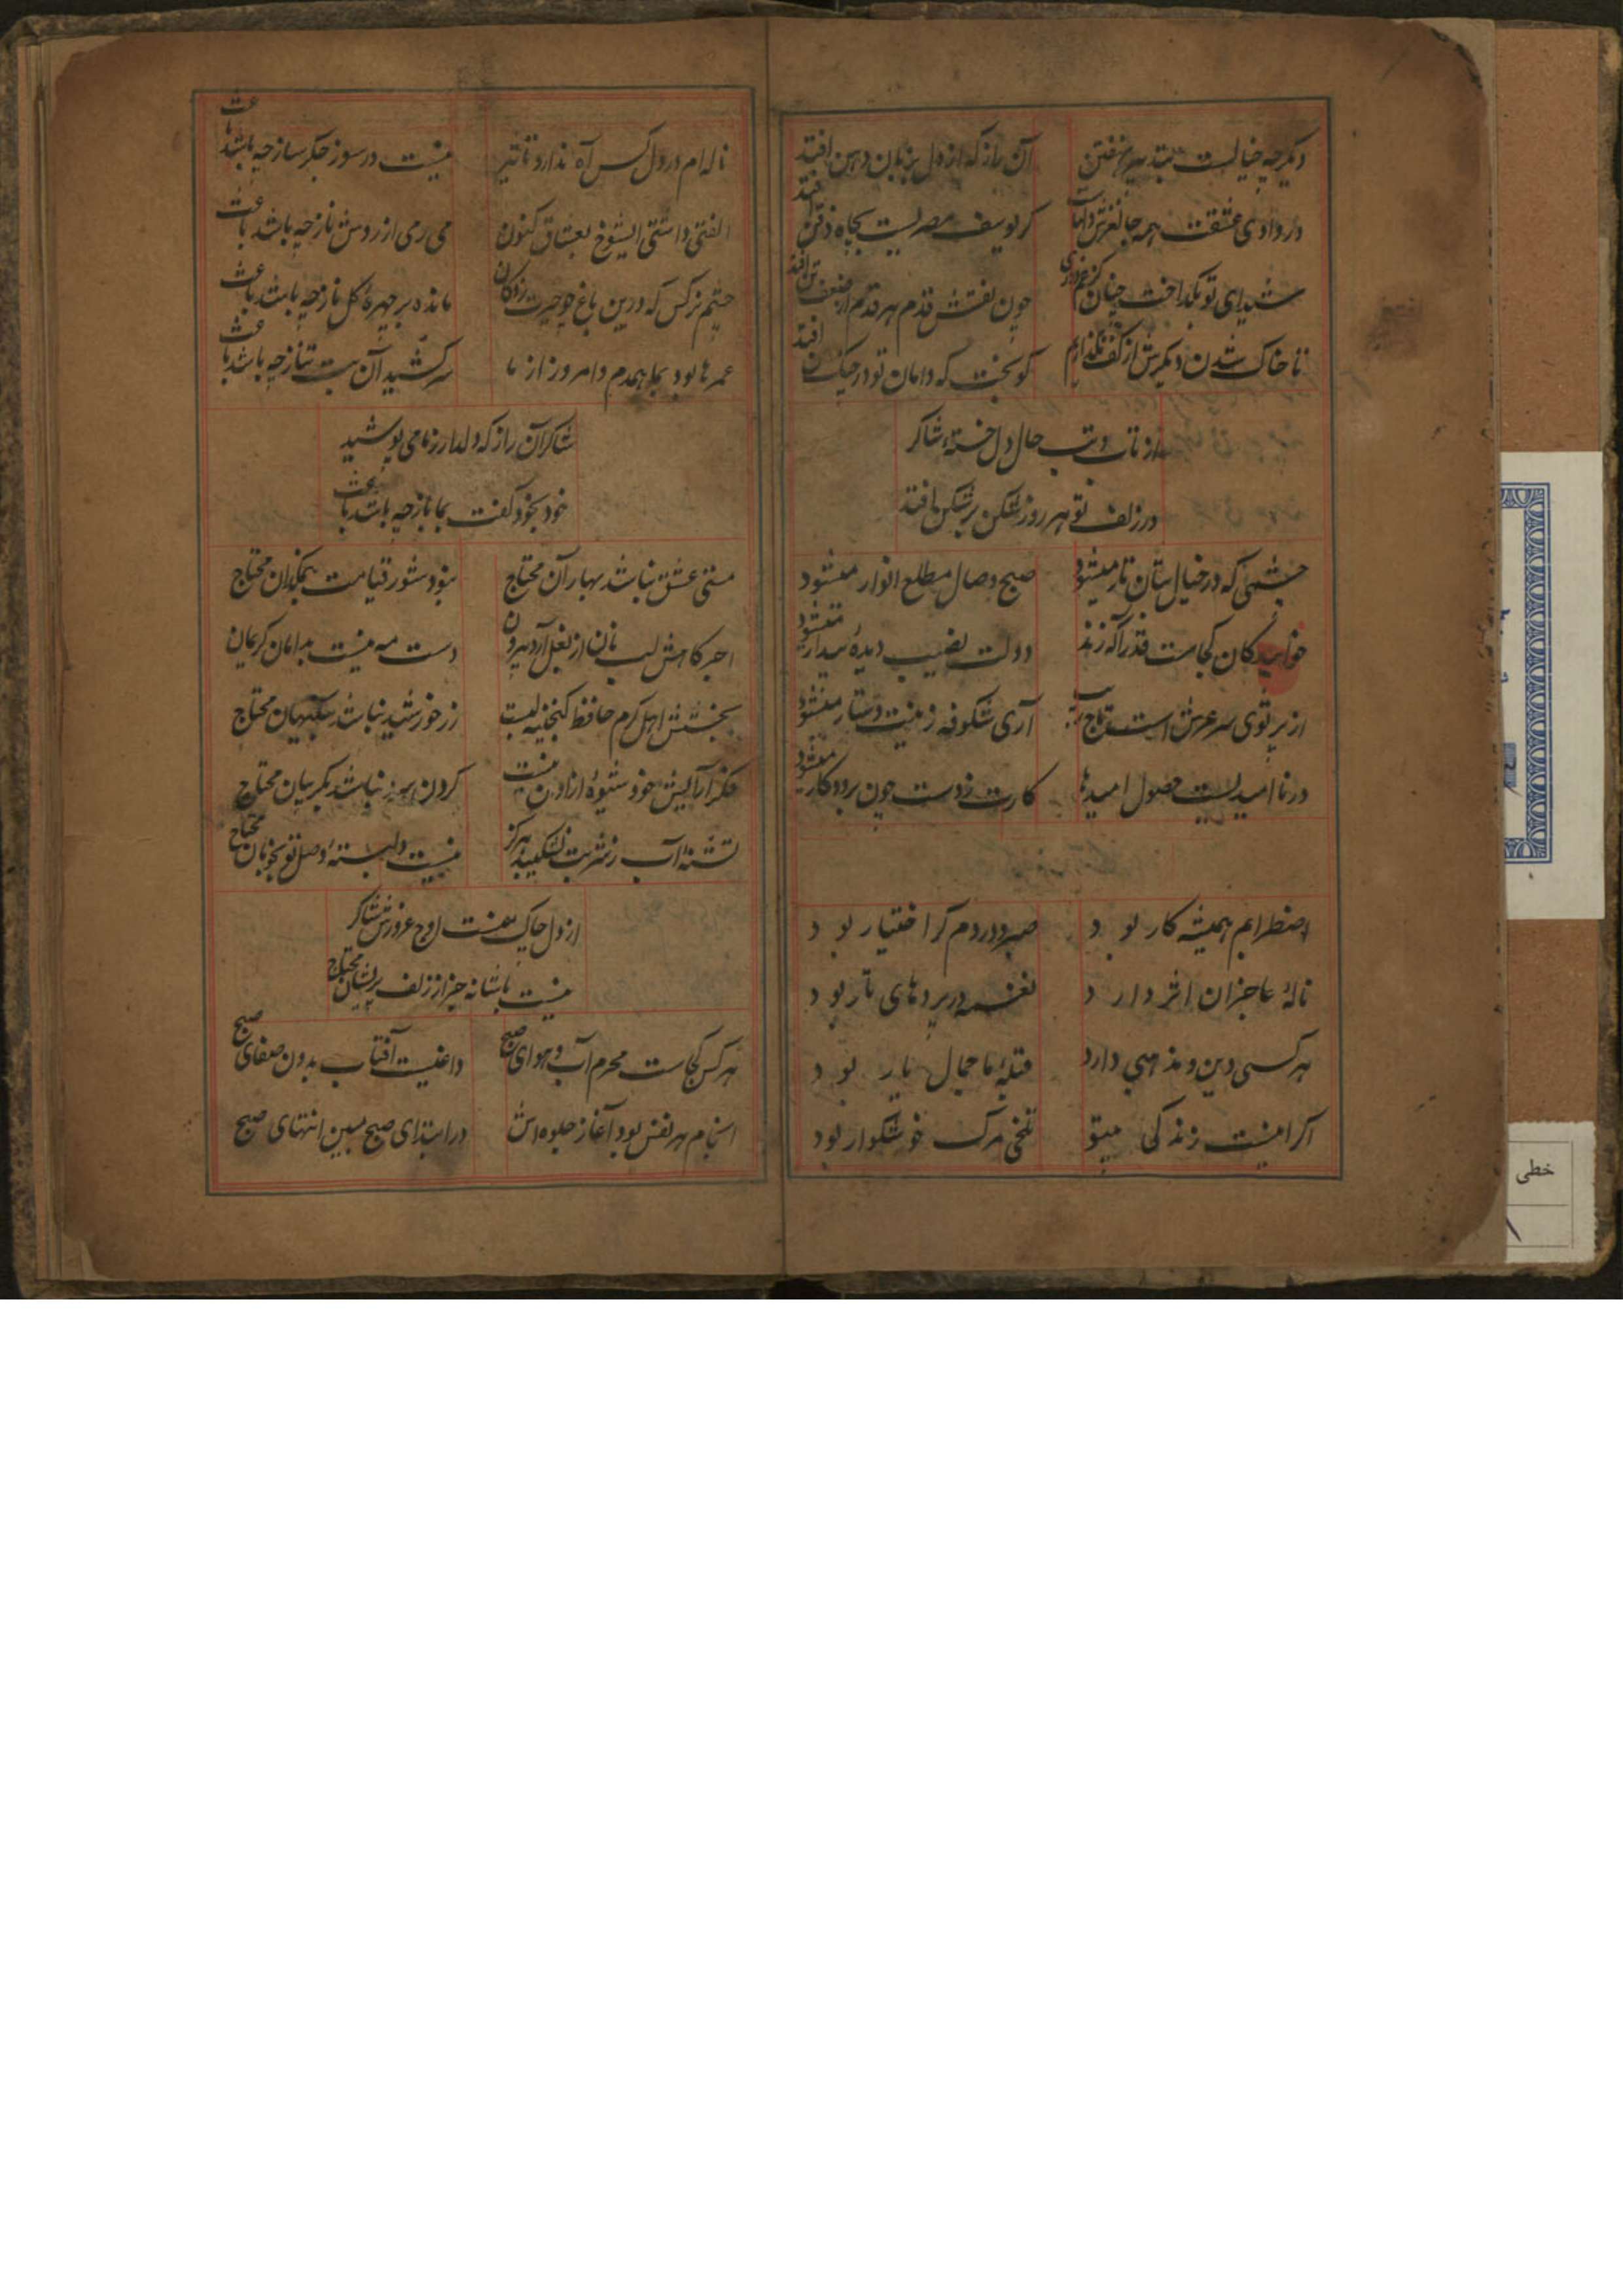 دیگر چه خیالست بتدبیر نهفتن آن راز که از دل بزبان و دهن افتد
در وادی عشقت همه جا لغزش پاهاست گر یوسف مصریست بچاه ذقن افتد
شیدای تو بگداخت چنان کز غم دوری چون نقش قدم هر قدم از ضعف تن افتد
تا خاک شدن دیگرش از کف نگذاریم کو بخت که دامان تو در چنگ من افتد
از تاب و تب حال دل خسته شاکر
در زلف تو هر روز شکن بر شکن افتد
چشمی که در خیال بتان تار میشود صبح وصال مطلع انوار میشود
خوابیدگان کجاست قدر آگه زند دولت نصیب دیده بیدار میشود
از پرتوی سر عرش است تاج آری شکوفه زینت دستار میشود
در ناامیدیست حصول امیدها کارت ز دست چون برود کار میشود
اضطرابم همیشه کار بود صبر و دردم گر اختیار بود
ناله عاجزان اثر دارد نغمه در پردهای تار بود
هر کسی دین و مذهبی دارد قبله ما جمال یار بود
اگر اینست زندگی بیتو تلخی مرگ خوشگوار بود
ناله ام در دل کس آه ندارد تاثیر نیست در سوز جگر ساز چه باشد باعث
الفتی داشتی ایشوخ بعشاق کنون می رمی از روش ناز چه باشد باعث
چشم نرگس که درین باغ چو حیرت زدگان مانده بر چهره گل باز چه باشد باعث
عمرها بود بما همدم و امروز از ما سر کشید آن بت طناز چه باشد باعث
شاکر آن راز که دلدار ز ما می پوشید
خود بخود گفت بما باز چه باشد باعث
مستی عشق نباشد بهاران محتاج نبود شور قیامت بنمکدان محتاج
اجر کامش لب نان از بغل آرد بیرون دست مه نیست بدامان کریمان
بخشش اهل کرم حافظ گنجینه بست زر خورشید نباشد بنگهبان محتاج
فکر آرایش خود شیوه آزادان نیست گردن سرو نباشد بگریبان محتاج
تشنه آب ز شربت نشکیبد هرگز نیست دلبسته وصل تو بخوبان محتاج
از دل چاک منست اوج غرورش شاکر
نیست با شانه جز از زلف پریشان محتاج
هر کس کجاست محرم آب و هوای صبح داغیست آفتاب بدون صفای صبح
انجام هر نفس بود آغاز جلوه اش در ابتدای صبح ببین انتهای صبح
خطی